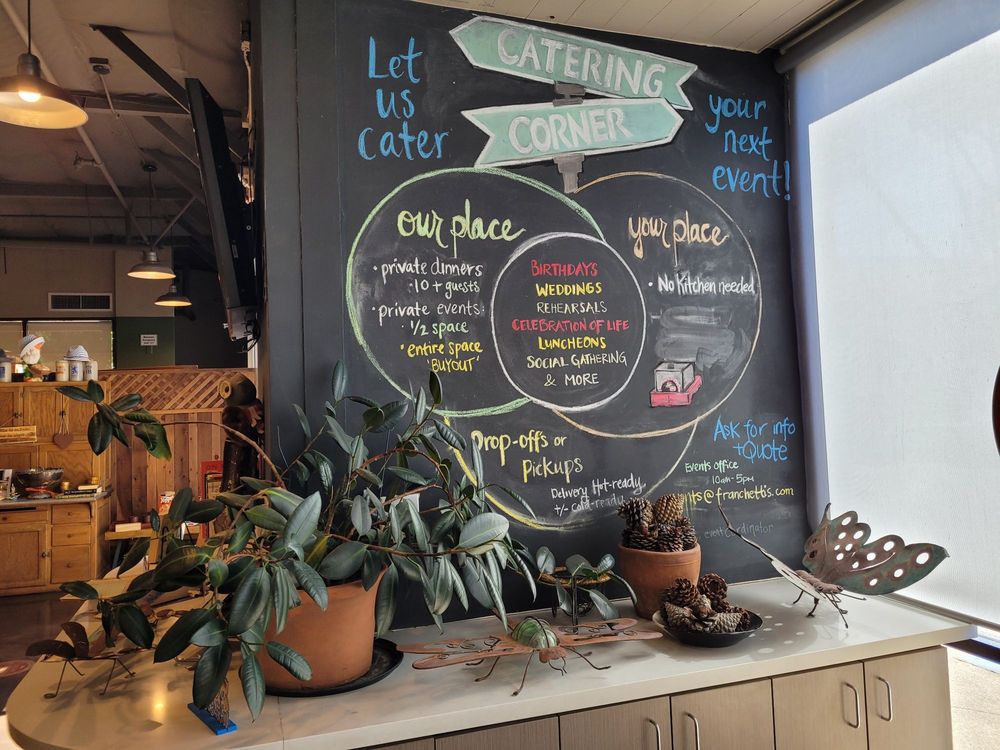 Let
us
cater
CATERING
CORNER
your
next
event!
our place
• private dinners
• 10 + guests
• private events:
• 1/2 space
• entire space
"BUYOUT"
BIRTHDAYS
WEDDINGS
REHEARSALS
CELEBRATION OF LIFE
LUNCHEONS
SOCIAL GATHERING
& MORE
your place
• No Kitchen needed
Drop-offs or
Pickups
Delivery Hot-ready
+/- cold-ready
Ask for info
+ Quote
Events office
10am-5pm
nts@franchettis.com